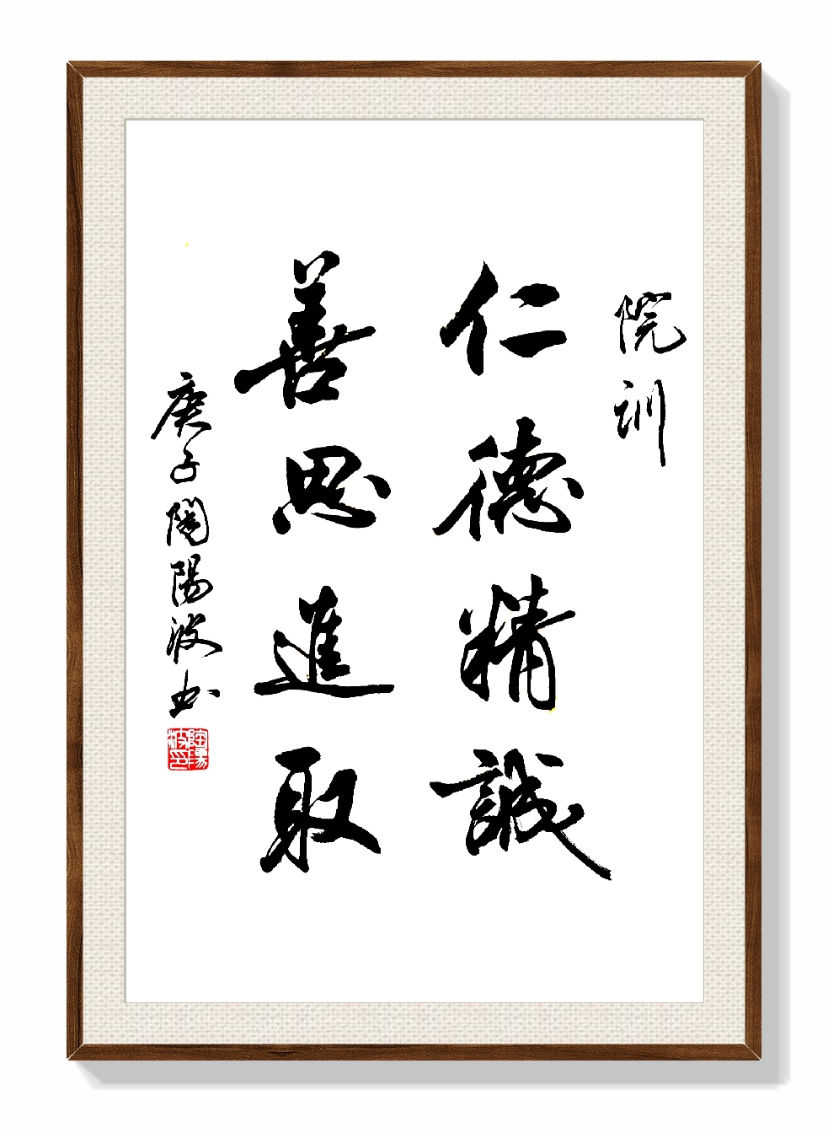 院訓
仁德精誠
善思進取
庚子陶陽波书